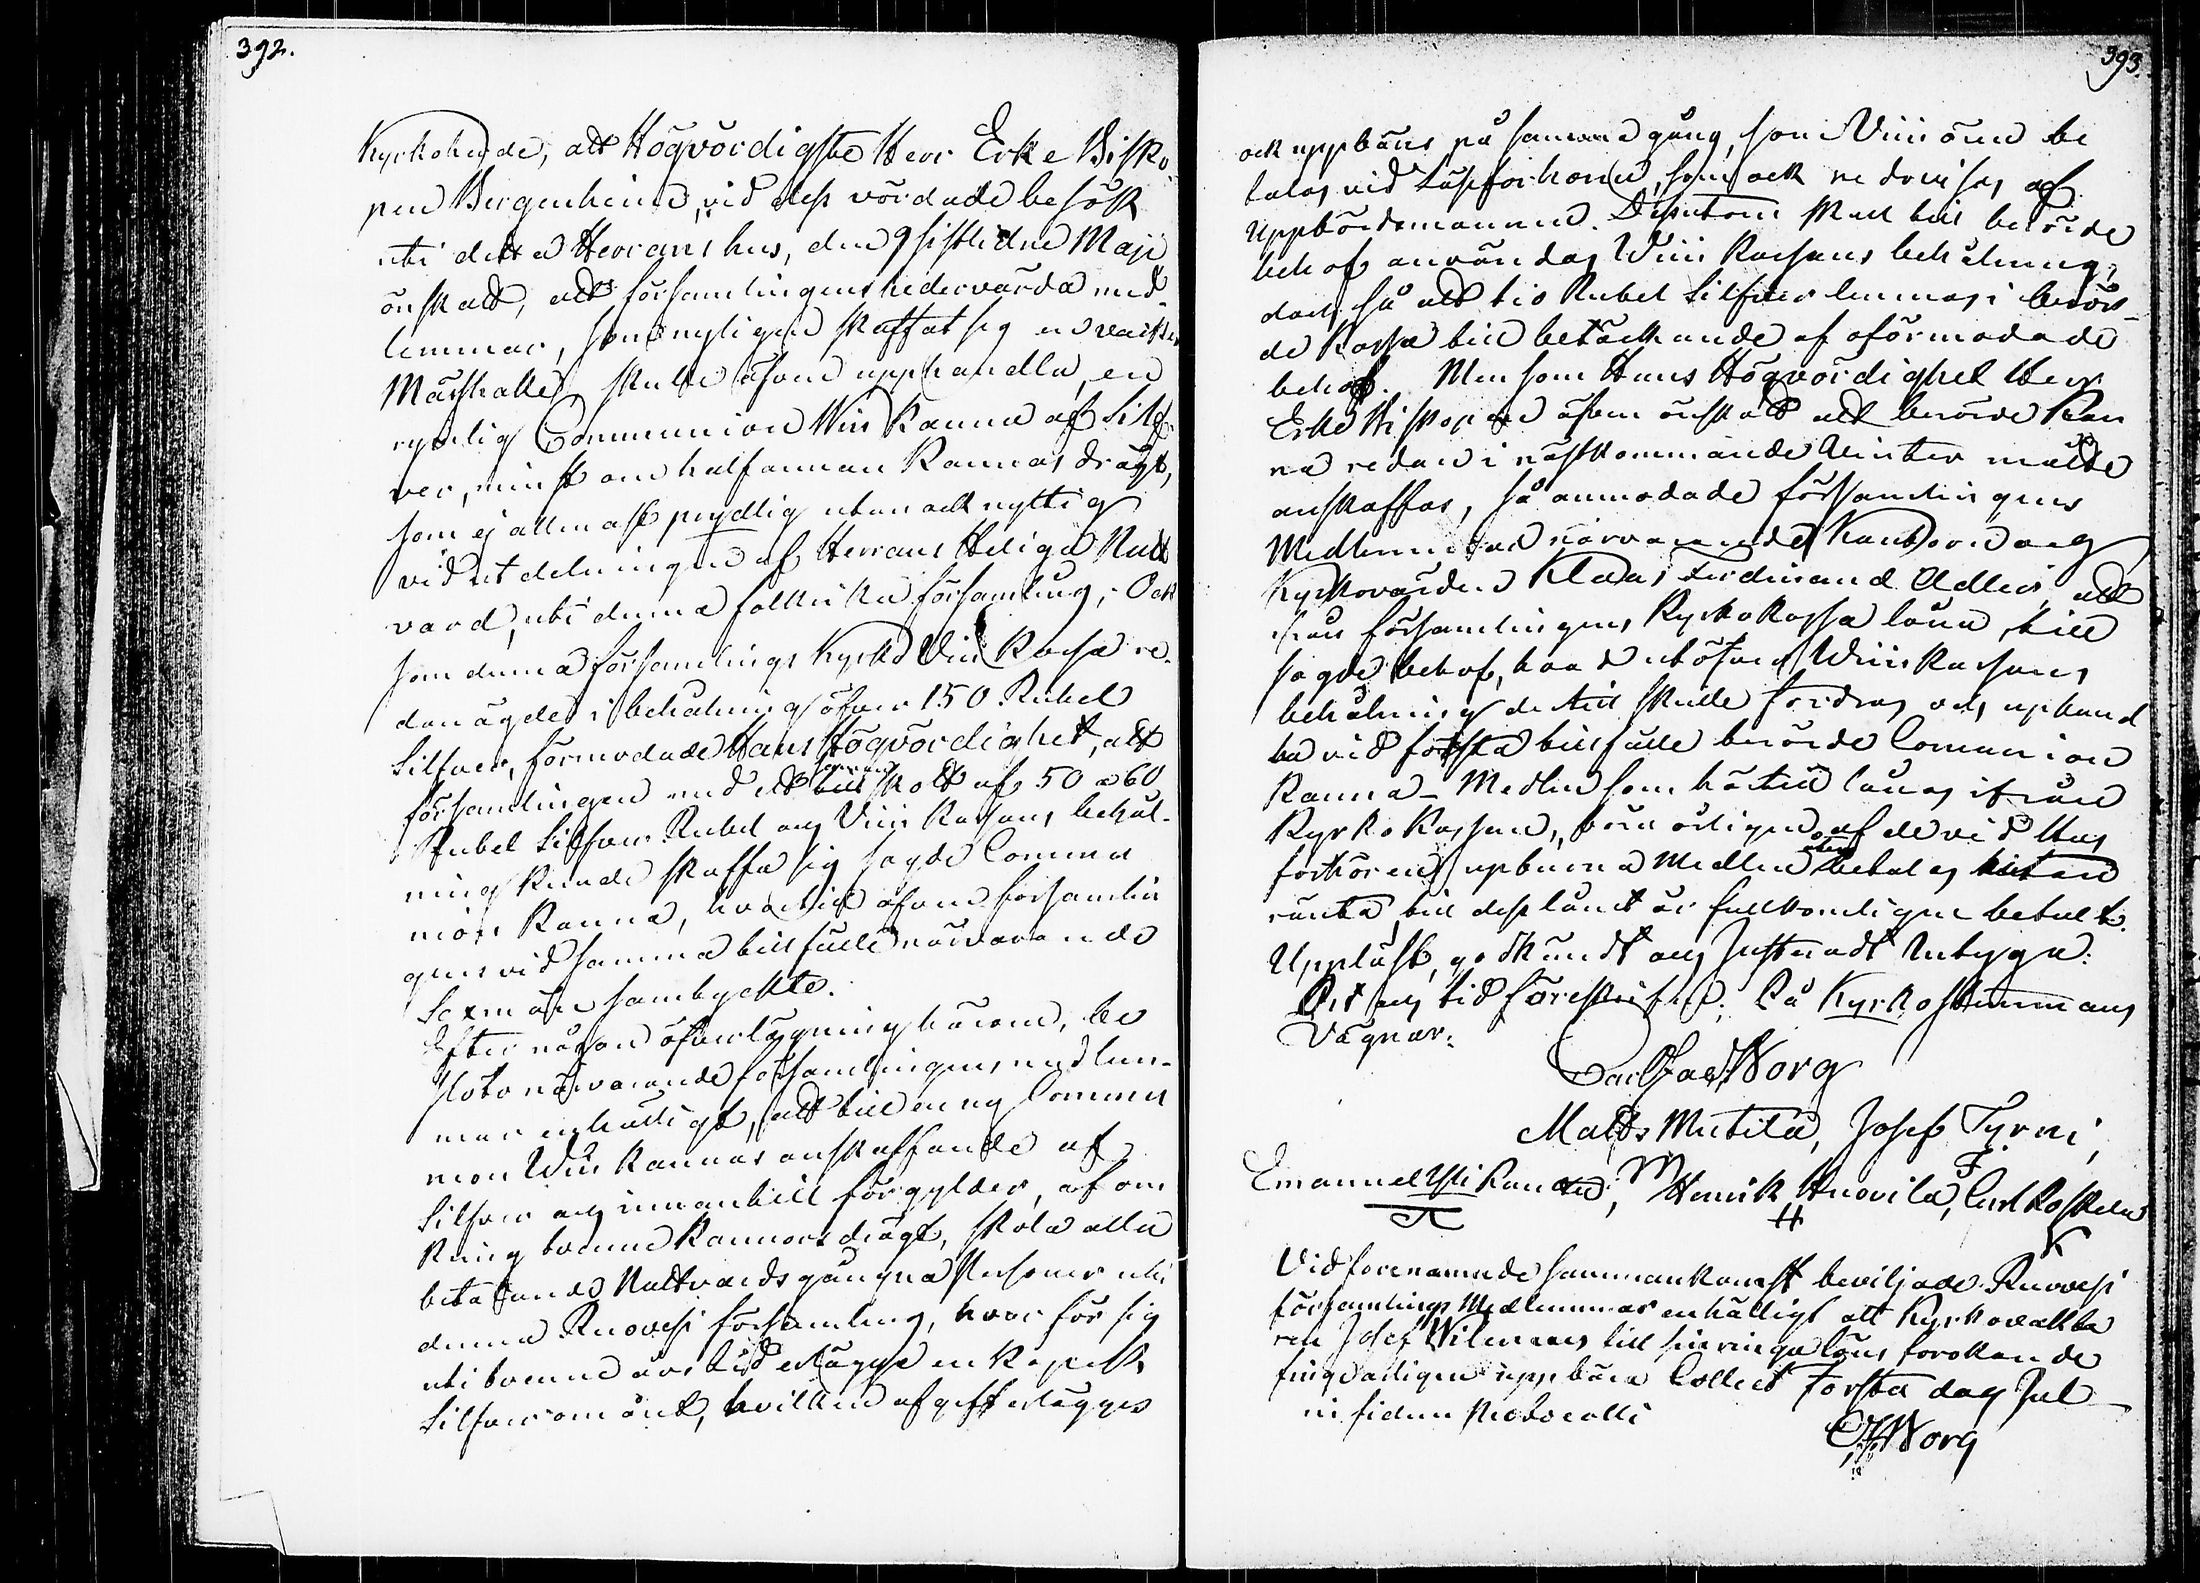 392.
Kyrkoherde, att Högvördigste Herr Erke Bisko-
pen Bergenheim, vid dess vördade besök
uti detta Herrans hus, den 9 sistledne Maji
önskat, att församlingens hedervärda med-
lemmar, som nyligen skaffat sig en vacker
Mässhake, skulle äfven upphandla, en
rymlig Communion Win Kanna af Silf-
ver, minst om halfannan Kannas drägt,
som ej allenast prydlig utan ock nyttig
vid utdelningen af Herrans Heliga Natt
vard, uti denna folkrika församling; Och
som denna församlings Kyrko Vin Kassa re-
dan ägde i behållning öfver 150 Rubel
Silfver, förmodade Hans Högvördighet, att
församlingen med ett tillskott af 50 a 60
Rubel Silfver Rubel och Vin Kassans behåll-
ning kunde skaffa sig sagde Commu
nion Kanna, hvartill äfven församlin
gens vid samma tillfälle närvarande
Sexmän samtyckte.
Efter någon öfverläggning härom, be
slöto närvarande församlingens medlem-
mar enhälligt, att till en ny Commu
nion Win Kannas anskaffande af
Silfver och innantill förgylder, af om
kring tvenne Kannors drägt, skola alla
betalande Nattvardsgångna Personer uti
denna Ruovesi församling, hvar för sig
uti tvenne års tid erlägga en kopek
Silfver om året, hvilken afgift erlägges
393.
ock uppbäres på samma gång, som Vin ören be
talas vid Läseförhören, som ock redovisas af
Uppbördsmannen. Dessutom skall till berörde
behof användas Win Kassans behållning,
dock så att tio Rubel Silfver lemnas i berör-
de Kassa till betäckande af oförmodade
behof. Men som Hans Högvördighet Herr
Erke Biskopen äfven önskat att berörde Kan
na redan i nästkommande Winter måtte
anskaffas, så anmodade församlingens
Medlemmar närvarande Kantorn och
Kyrkovärden Klaas Ferdinand Adler, att
från församlingens Kyrkokassa låna till
sagde behof, hvad utöfver Winkassans
behållning dertill skulle fordras och uphand
la vid första tillfälle berörde Communion
Kanna - Medlen som härtill lånas ifrån
Kyrko Kassan, böra årligen af de vid Läs
förhören upburna Medlen betalas utan
ränta till dess lånet är fullkomligen betalt.
Uppläst, godkändt och justeradt betyga:
Ort och tid föreskrifne; På Kyrkostämmans
Vägnar:
Carl Jac Norg
Matts Mutila, Josef Tyrni,
Emanuel Yli Ranted, Henrik Knovila, Carl Koskela
Vid förenämnde sammankomst beviljade Ruovesi
församlings Medlemmar enhälligt att Kyrkovakta
ren Josef Wilmans till sin ringa löns förökande
finge årligen uppbära Collect Första dag Jul -
in fidem Protocolli
CJNorg